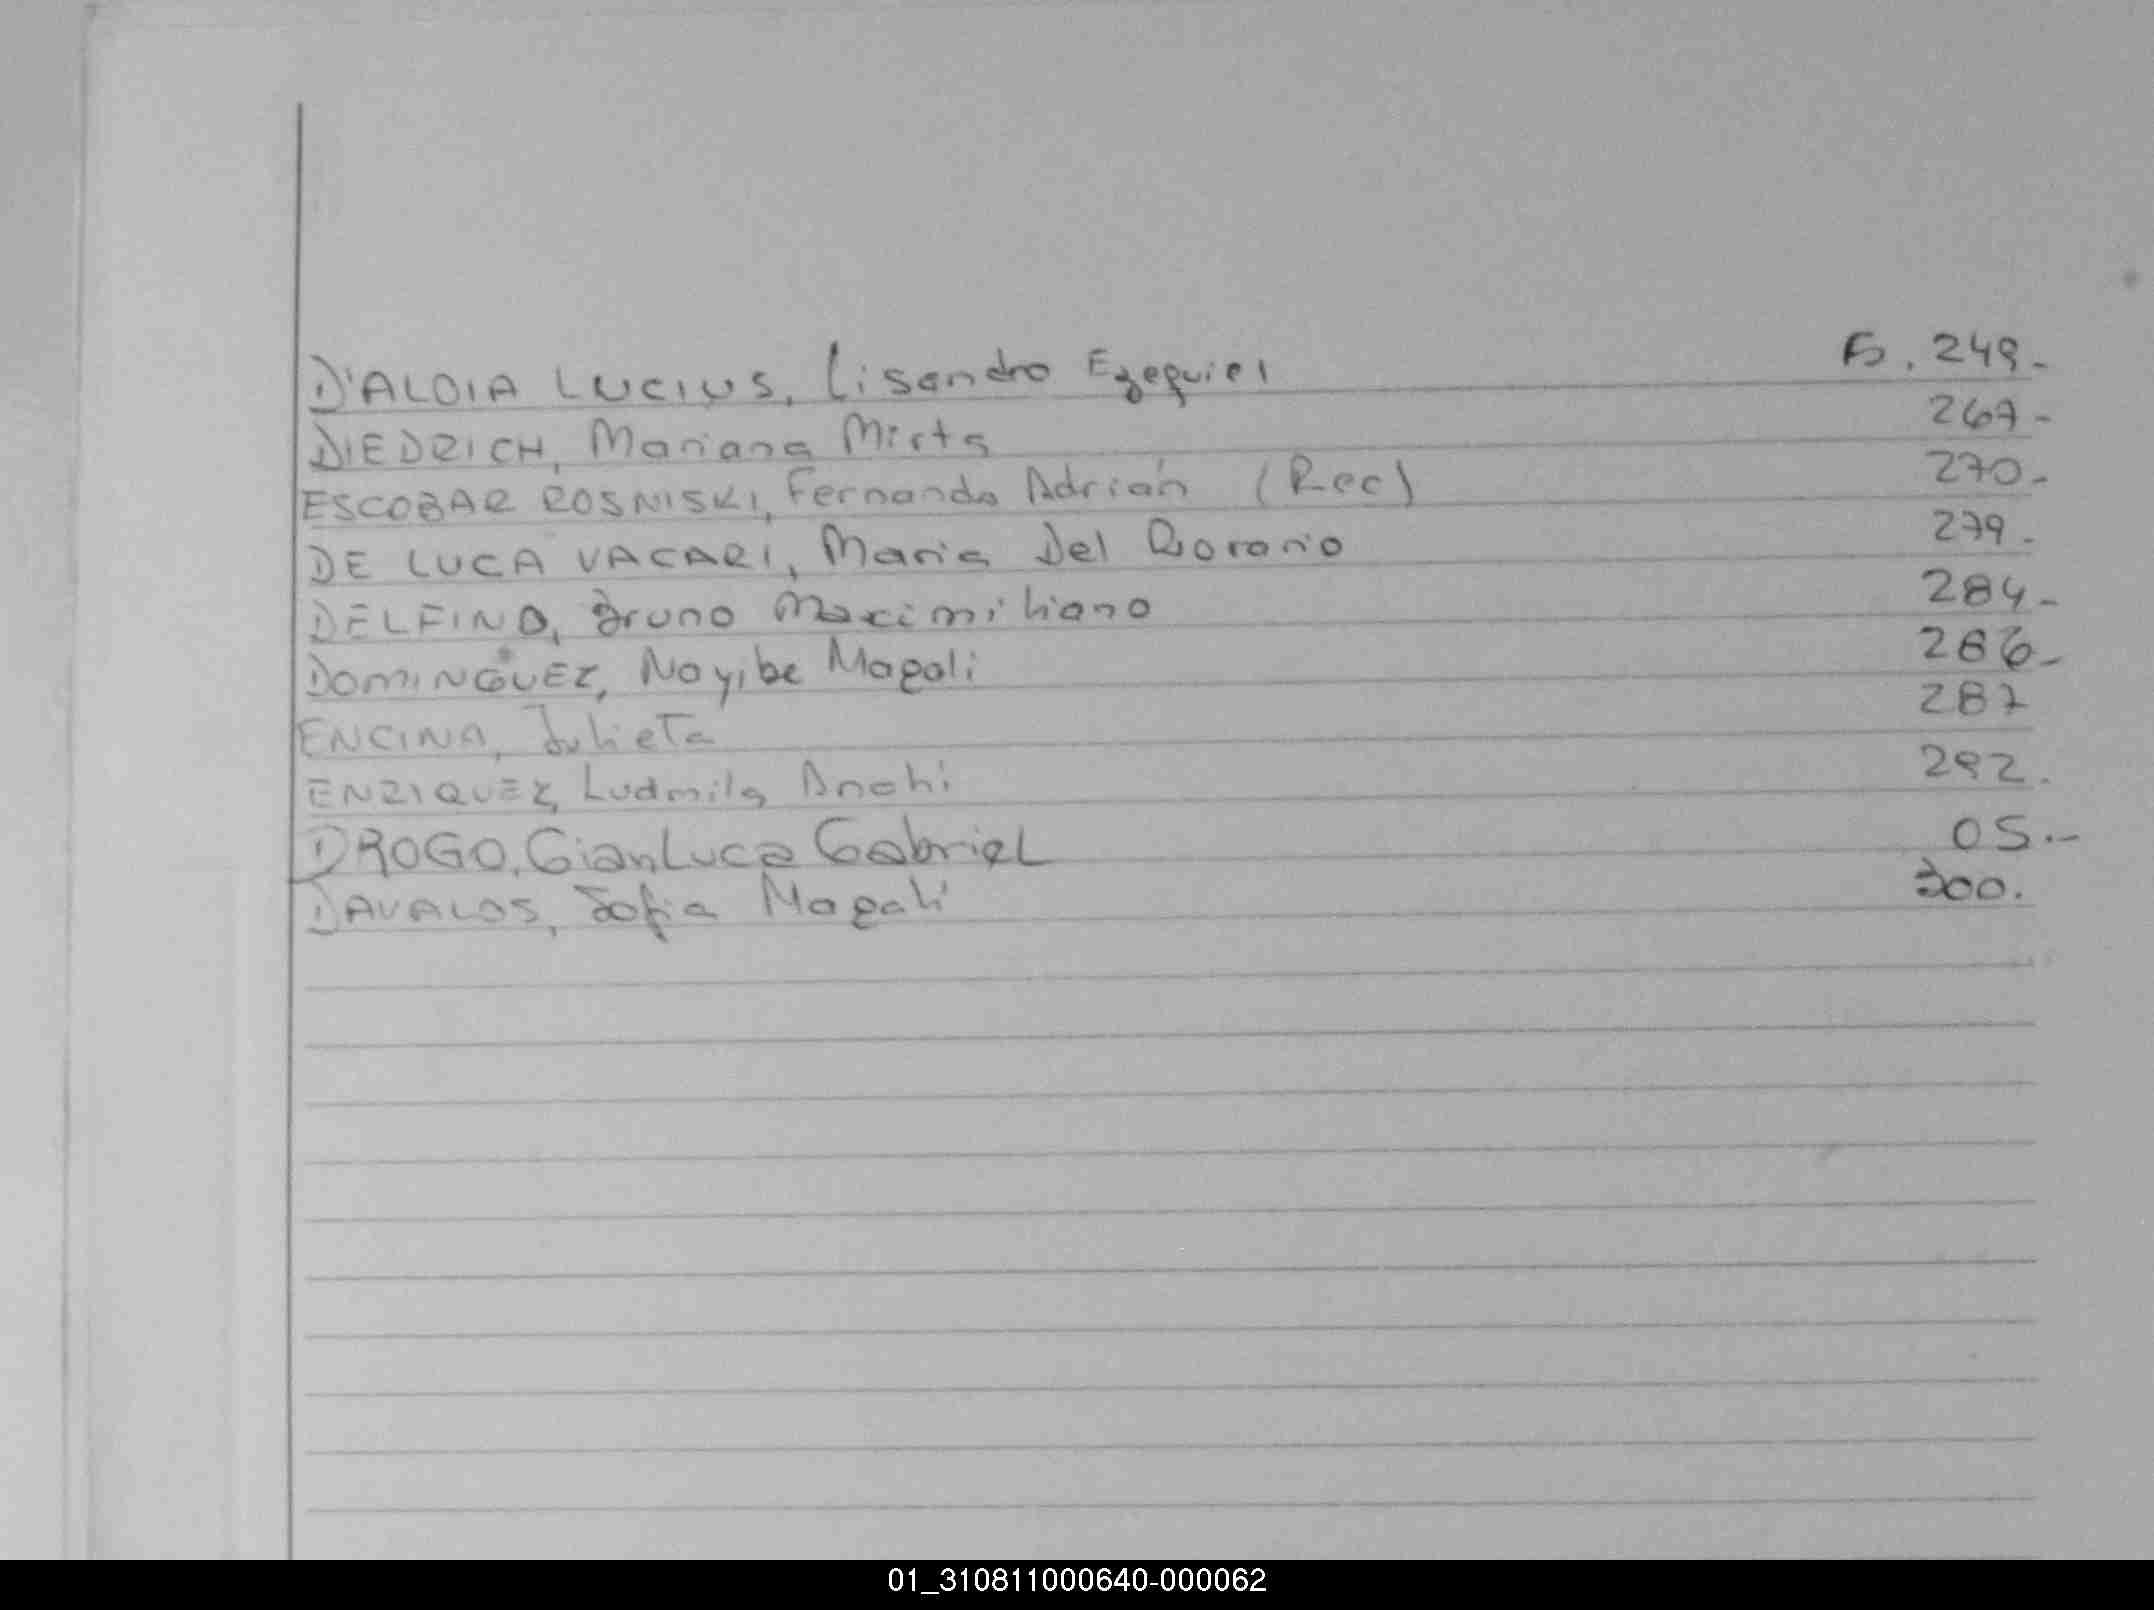 D'ALOIA LUCIUS, Lisandro Ezequiel Fs. 249-
DIEDRICH, Mariana Mirta 267-
ESCOBAR ROSNISKI, Fernando Adrián (Rec) 270-
DE LUCA VACARI, Maria Del Rorario 279-
DELFINO, Bruno Maximiliano 284-
DOMINGUEZ, Nayibe Magali 286-
ENCINA, Julieta 287
ENRIQUEZ, Ludmila Anahi 292.
DROGO, GianLuca Gabriel 05.-
DAVALOS, Sofia Magali 300.
01_310811000640-000062